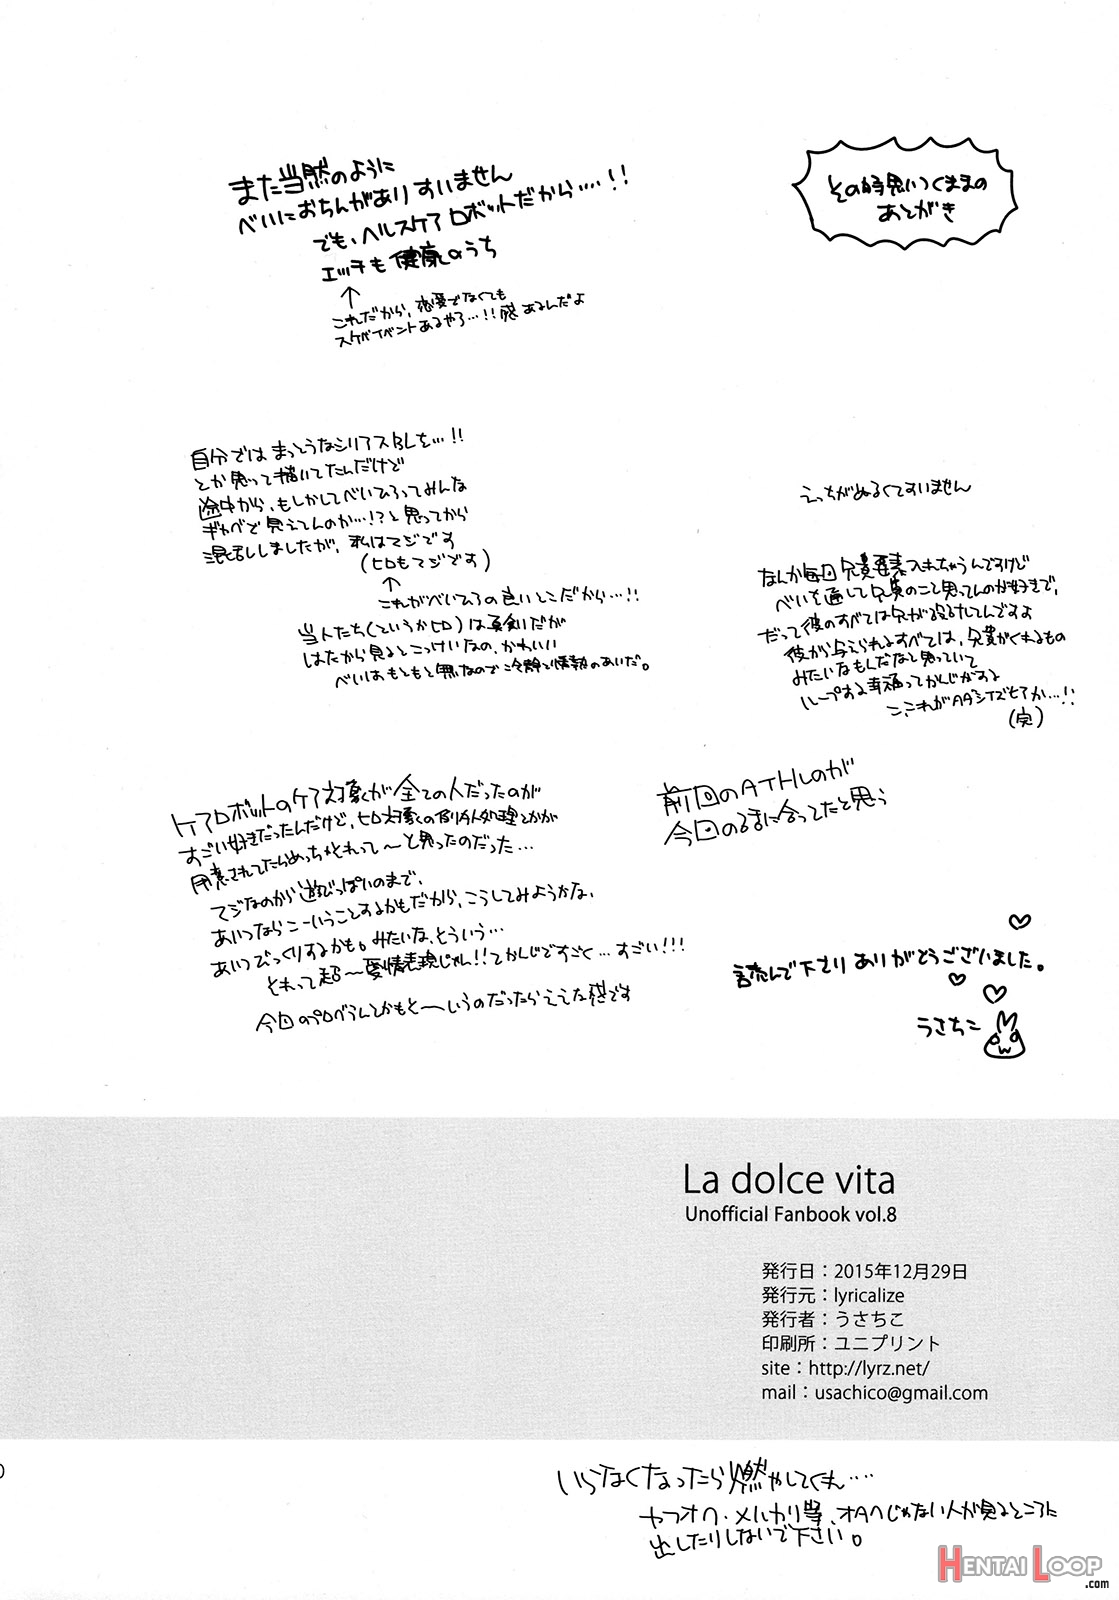 その時思いつくままの
あとがき
また当然のように
べいにおちんがありすいません
でも、ヘルスケアロボットだから…!!
エッチも健康のうち
↑
これだから、恋愛でなくても
スケベイベントあるやろ…!!感あるんだよ
えっちがぬるくてすいません
自分では まっとうなシリアスBLを…!!
とか思って描いてたんだけど
途中から、もしかしてべいひろってみんな
ギャグで見えてんのか…!?と思ってから
混乱しましたが、私はマジです
(ヒロもマジです)
↑
これがべいひろの良いとこだから…!!
当人たち(というかヒロ)は真剣だが
はたから見るとこっけいなの、かわいい
べいはもともと無なので冷静と情熱のあいだ。
なんか毎回兄貴要素入れちゃうんですけど
べいを通して兄貴のこと思ってんのが好きで、
だって彼のすべては兄が
彼が与えられるすべては、兄貴がくれるもの
みたいなもんだなと思っていて
ループする幸福ってかんじがする
こ、これが
(完)
ケアロボットのケア対象が全ての人だったのが
すごい好きだったんだけど、ヒロ対象の
用意されてたらめっちゃそれって〜と思ったのだった…
マジなのから遊びっぽいのまで、
あいつならこーいうことするかもだから、こうしてみようかな、
あいつびっくりするかも。みたいな、そういう…
それって超〜愛情表現じゃん!!てかんじですごく…すごい!!!
今回の
前回のATHLのが
今回の
読んで下さり ありがとうございました。
うさちこ
La dolce vita
Unofficial Fanbook vol.8
発行日：2015年12月29日
発行元：lyricalize
発行者：うさちこ
印刷所：ユニプリント
site：http://lyrz.net/
mail：usachico@gmail.com
いらなくなったら燃やしてくれ…
ヤフオク・メルカリ等、オタクじゃない人が見るところに
出したりしないで下さい。
HENTAI LOOP
.com